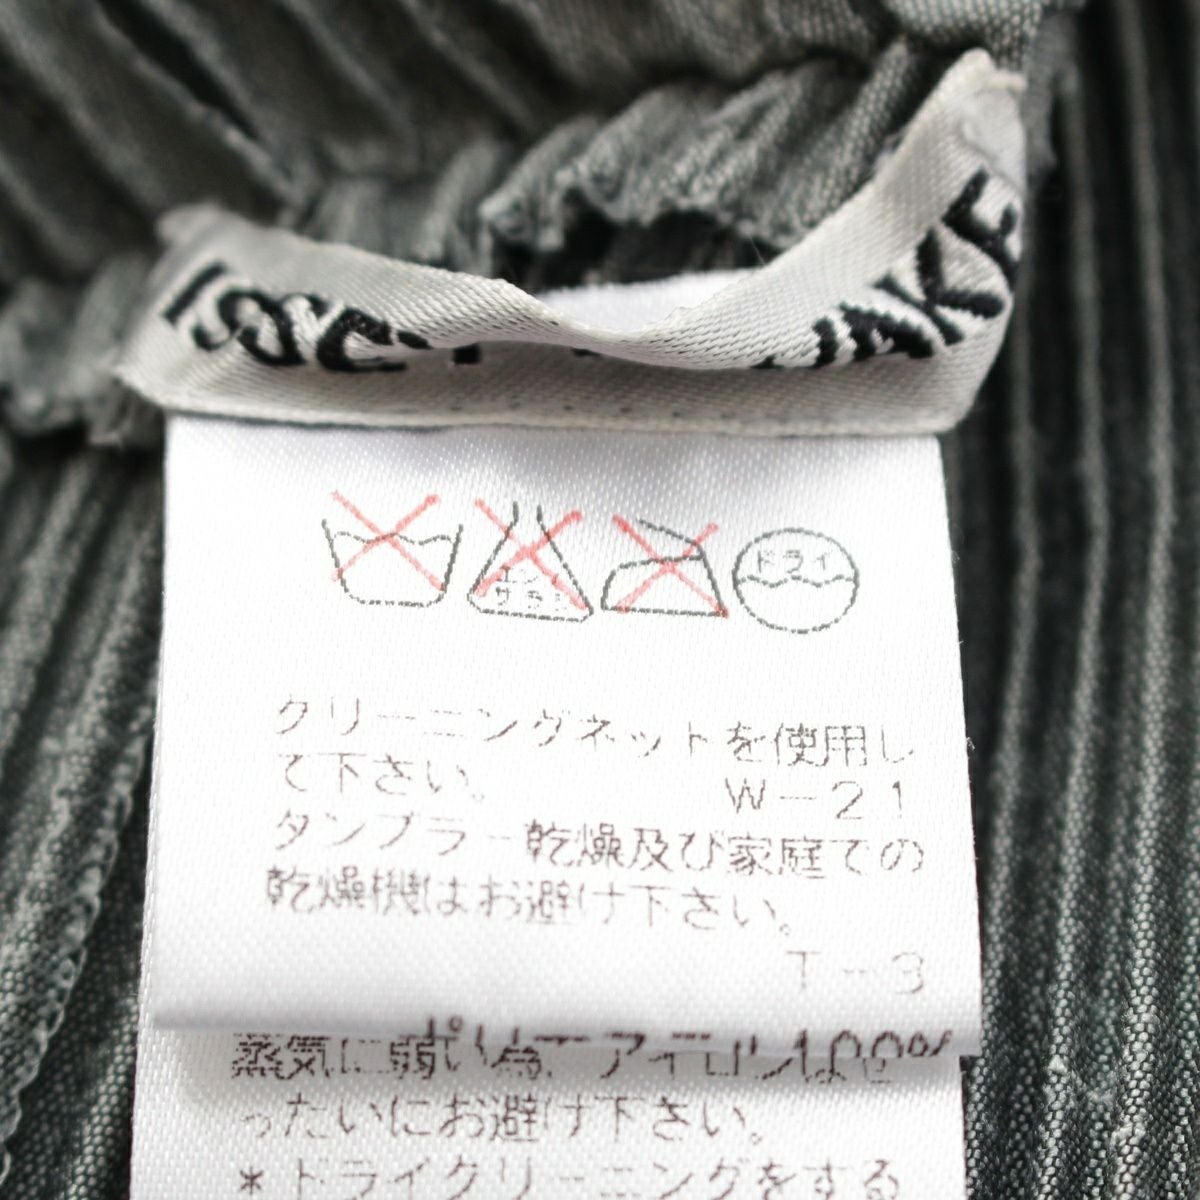 ISSEY MIYAKE
エンソ
サラシ
ドライ
クリーニングネットを使用し
て下さい。 W-21
タンブラー乾燥及び家庭での
乾燥機はお避け下さい。
T-3
蒸気に弱い為、アイロンはぜ
ったいにお避け下さい。
*ドライクリーニングをする